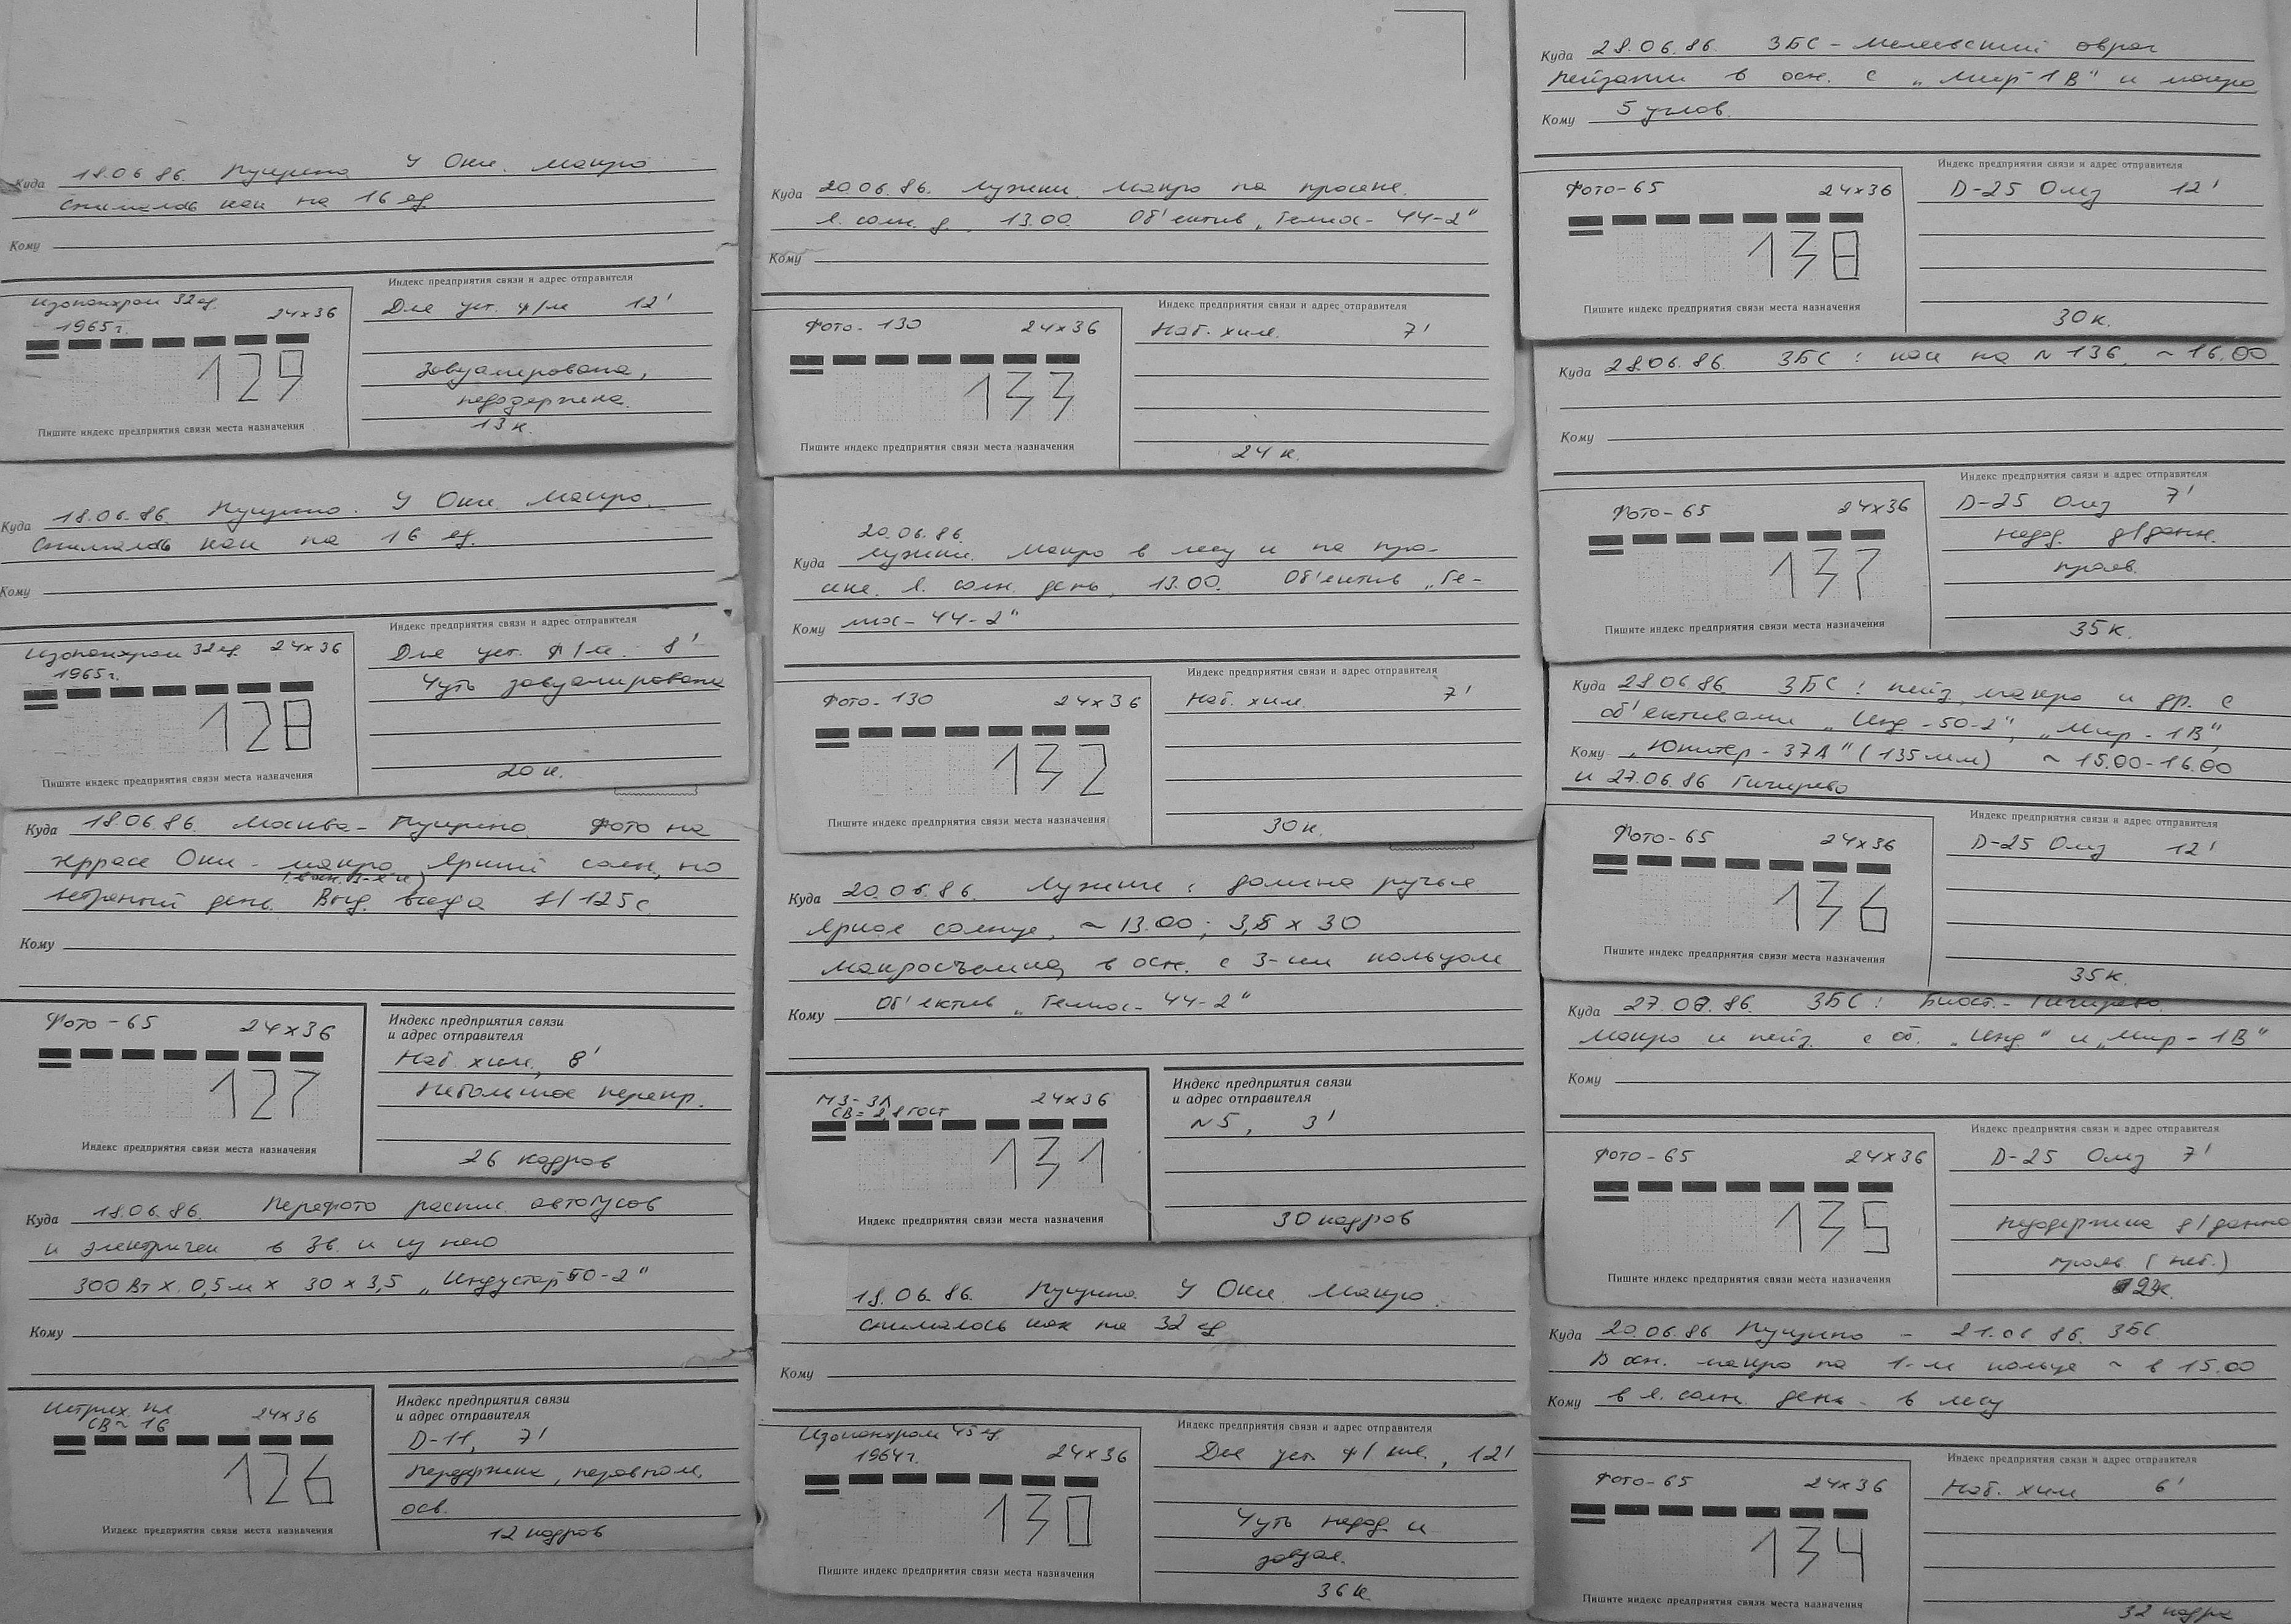 Куда 18.06.86. Пущино У Оки. Макро
Снималось как на 16 ед.
Кому
Индекс предприятия связи и адрес отправителя
Изопанхром 32 ед. 24х36
1965г.
Для уст. ф/м 12'
129
Завуалирована,
недодержана.
13 к.
Пишите индекс предприятия связи места назначения
Куда 18.06.86. Пущино. У Оки. Макро.
Снималось как на 16 ед.
Кому
Индекс предприятия связи и адрес отправителя
Изопанхром 32 ед. 24х36
1965г.
Для уст. ф/м. 8'
Чуть завуалирована
128
20 к.
Пишите индекс предприятия связи места назначения
Куда 18.06.86. Москва - Пущино. Фото на
террасе Оки - макро Яркий солн, но
ветреный день. Выд. всегда 1/125с.
Кому
Фото - 65 24х36
Индекс предприятия связи
и адрес отправителя
Наб. хим., 8'
Небольшое перепр.
127
26 кадров
Индекс предприятия связи места назначения
Куда 18.06.86. Перефото распис. автобусов
и электричек в Зв. и из него
300 Вт х 0,5м х 30 х 3,5 „Индустар 50-2"
Кому
Штрих. пл 24х36
СВ ~ 16
Индекс предприятия связи
и адрес отправителя
D-11, 7'
Передержка, неравном.
осв.
126
12 кадров
Индекс предприятия связи места назначения
Куда 20.06.86. Лужки. Макро на просеке.
Я. солн. д., 13.00. Об'ектив „Гелиос - 44-2"
Кому
Индекс предприятия связи и адрес отправителя
Фото - 130 24х36
Наб. хим. 7'
133
24 к.
Пишите индекс предприятия связи места назначения
20.06.86.
Куда Лужки. Макро в лесу и на про-
секе. Я. солн. день, 13.00. Об'ектив „Ге-
Кому лиос - 44-2"
Индекс предприятия связи и адрес отправителя
Фото - 130 24х36
Наб. хим. 7'
132
30 к.
Пишите индекс предприятия связи места назначения
Куда 20.06.86. Лужки: долина ручья
Яркое солнце, ~ 13.00; 3,5 х 30
Макросъемка, в осн. с 3-им кольцом
Кому Об'ектив „Гелиос - 44-2"
МЗ-3Л 24х36
СВ = 2,8 ГОСТ
Индекс предприятия связи
и адрес отправителя
N5, 3'
131
30 кадров
Индекс предприятия связи места назначения
18.06.86. Пущино У Оки. Макро.
Снималось как на 32 ед
Кому
Индекс предприятия связи и адрес отправителя
Изопанхром 45 ед.
1964г. 24х36
Для уст. ф/пл., 12'
130
Чуть недод. и
завуал.
36 к
Пишите индекс предприятия связи места назначения
Куда 28.06.86. ЗБС - овраг
Пейзажи в осн. с „Мир-1В" и макро
Кому 5 углов.
Индекс предприятия связи и адрес отправителя
Фото-65 24х36
D-25 Омз 12'
138
30 к.
Пишите индекс предприятия связи места назначения
Куда 28.06.86. ЗБС: как на N 136, ~ 16.00
Кому
Индекс предприятия связи и адрес отправителя
Фото-65 24х36
D-25 Омз 7'
недод. д/данн.
прояв.
137
35 к.
Пишите индекс предприятия связи места назначения
Куда 28.06.86. ЗБС: пейз, макро и др. с
об'ективами „Инд-50-2", „Мир-1В",
Кому „Юпитер-37А" (135мм) ~ 15.00-16.00
и 27.06.86
Индекс предприятия связи и адрес отправителя
Фото-65 24х36
D-25 Омз 12'
136
35 к.
Пишите индекс предприятия связи места назначения
Куда 27.06.86. ЗБС: Биост. -
Макро и пейз. с об. „Инд." и „Мир-1В"
Кому
Индекс предприятия связи и адрес отправителя
Фото-65 24х36
D-25 Омз 7'
135
Недодержка д/данно
прояв. (неб.)
Пишите индекс предприятия связи места назначения
Куда 20.06.86 Пущино - 21.06.86. ЗБС.
В осн. макро на 1-м кольце ~ в 15.00
Кому в я. солн. день - в лесу
Индекс предприятия связи и адрес отправителя
Фото-65 24х36
Наб. хим 6'
134
32 кадра
Пишите индекс предприятия связи места назначения